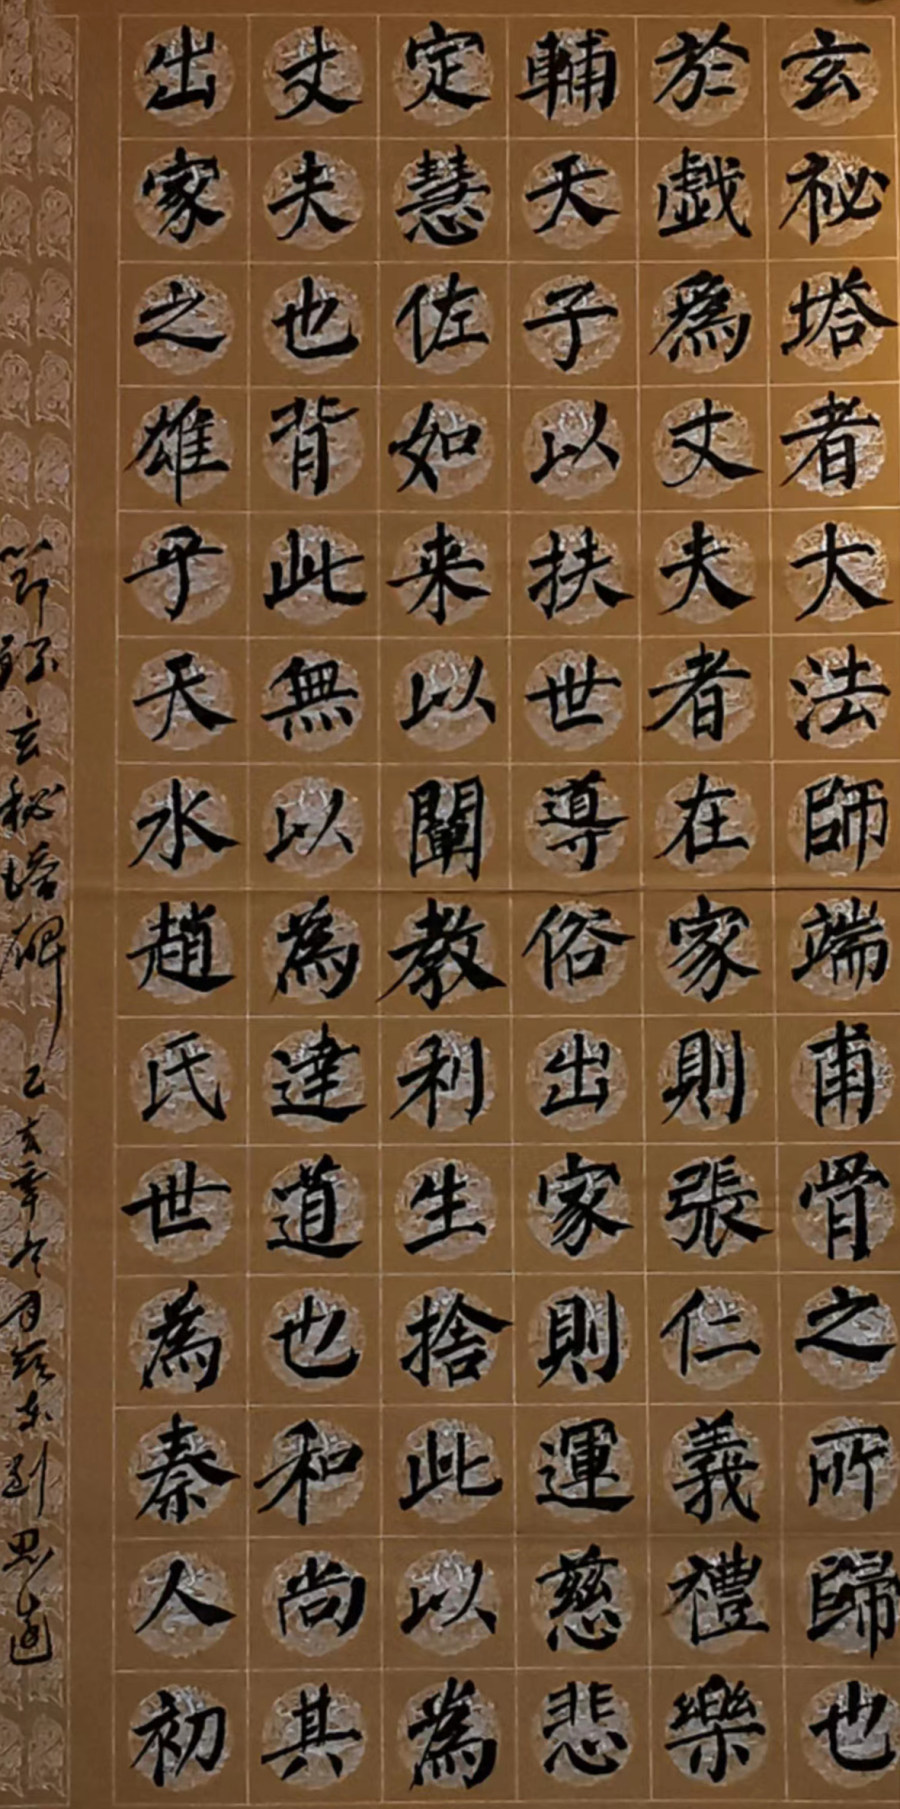 玄祕塔者大法師端甫骨之所歸也
於戱爲丈夫者在家則張仁義禮樂
輔天子以扶世導俗出家則運慈悲
定慧佐如来以闡教利生捨此以為
丈夫也背此無以為達道也和尚其
出家之雄乎天水趙氏世為秦人初
節錄玄秘塔碑乙亥年冬月於東劉思